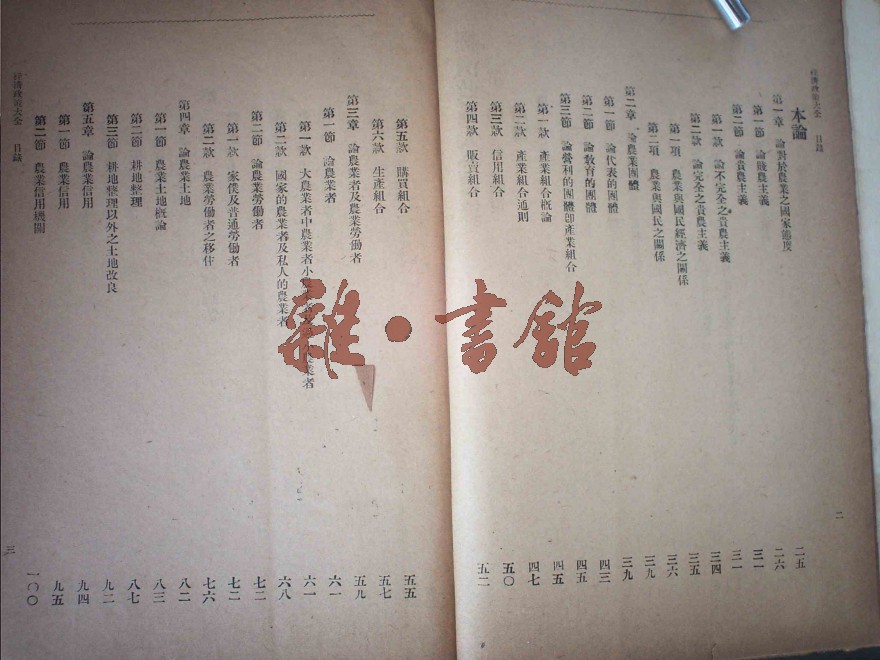 經濟政策大全 目錄
本論
第一章 論對於農業之國家態度 二五
第一節 論賤農主義 二六
第二節 論貴農主義 三一
第一款 論不完全之貴農主義 三一
第二款 論完全之貴農主義 三四
第一項 農業與國民經濟之關係 三五
第二項 農業與國民之關係 三六
第二章 論農業團體 三九
第一節 論代表的團體 三九
第二節 論教育的團體 四三
第三節 論營利的團體卽產業組合 四五
第一款 產業組合概論 四五
第二款 產業組合通則 四七
第三款 信用組合 五〇
第四款 販賣組合 五二
二
第五款 購買組合 五五
第六款 生產組合 五七
第三章 論農業者及農業勞働者 五九
第一節 論農業者 六一
第一款 大農業者中農業者小農業者 六一
第二款 國家的農業者及私人的農業者 六八
第二節 論農業勞働者 七二
第一款 家僕及普通勞働者 七二
第二款 農業勞働者之移住 七六
第四章 論農業土地 八二
第一節 農業土地概論 八三
第二節 耕地整理 八七
第三節 耕地整理以外之土地改良 九二
第五章 論農業信用 九四
第一節 農業信用 九五
第二節 農業信用機關 一〇〇
經濟政策大全 目錄
三
雜·書館